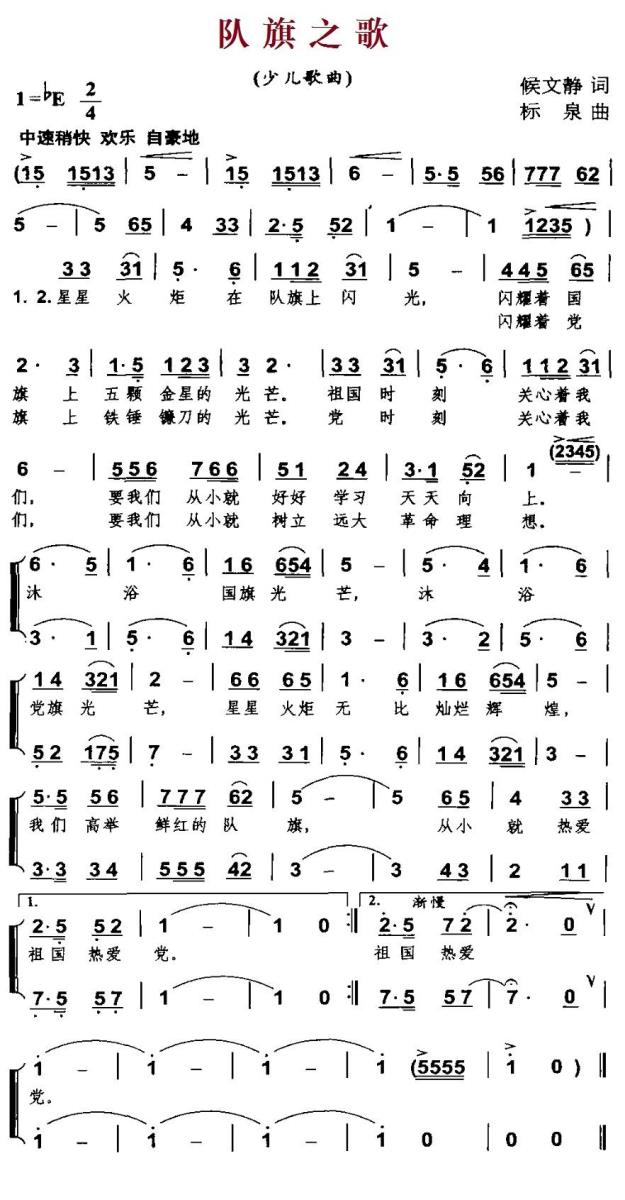 队旗之歌
(少儿歌曲)
1=♭E 2/4
候文静 词
标泉 曲
中速稍快 欢乐 自豪地
(15 1513 | 5 – | 15 1513 | 6 – | 5·5 56 | 777 62 |
5 – | 5 65 | 4 33 | 2·5 52 | 1 – | 1 1235 ) |
33 31 | 5· 6 | 112 31 | 5 – | 445 65 |
1. 2. 星星 火 炬 在 队旗上 闪 光, 闪耀着 国
闪耀着 党
2· 3 | 1·5 123 | 3 2· | 33 31 | 5· 6 | 112 31 |
旗 上 五颗 金星的 光 芒。 祖国 时 刻 关心着 我
旗 上 铁锤 镰刀的 光 芒。 党 时 刻 关心着 我
(2345)
6 – | 556 766 | 51 24 | 3·1 52 | 1 – |
们, 要我们 从小就 好好 学习 天天 向 上。
们, 要我们 从小就 树立 远大 革命 理 想。
6· 5 | 1· 6 | 16 654 | 5 – | 5· 4 | 1· 6 |
沐 浴 国旗 光 芒, 沐 浴
3· 1 | 5· 6 | 14 321 | 3 – | 3· 2 | 5· 6 |
14 321 | 2 – | 66 65 | 1· 6 | 16 654 | 5 – |
党旗 光 芒, 星星 火炬 无 比 灿烂 辉 煌,
52 175 | 7 – | 33 31 | 5· 6 | 14 321 | 3 – |
5·5 56 | 777 62 | 5 – | 5 65 | 4 33 |
我们 高举 鲜红的 队 旗, 从小 就 热爱
3·3 34 | 555 42 | 3 – | 3 43 | 2 11 |
1. 2. 渐慢
2·5 52 | 1 – | 1 0 :‖ 2·5 72 | 2· 0 |
祖国 热爱 党。 祖国 热爱
7·5 57 | 1 – | 1 0 :‖ 7·5 57 | 7· 0 |
1 – | 1 – | 1 – | 1 – | (5555 | 1 0 ) ‖
党。
1 – | 1 – | 1 – | 1 – | 0 0 | 0 0 ‖